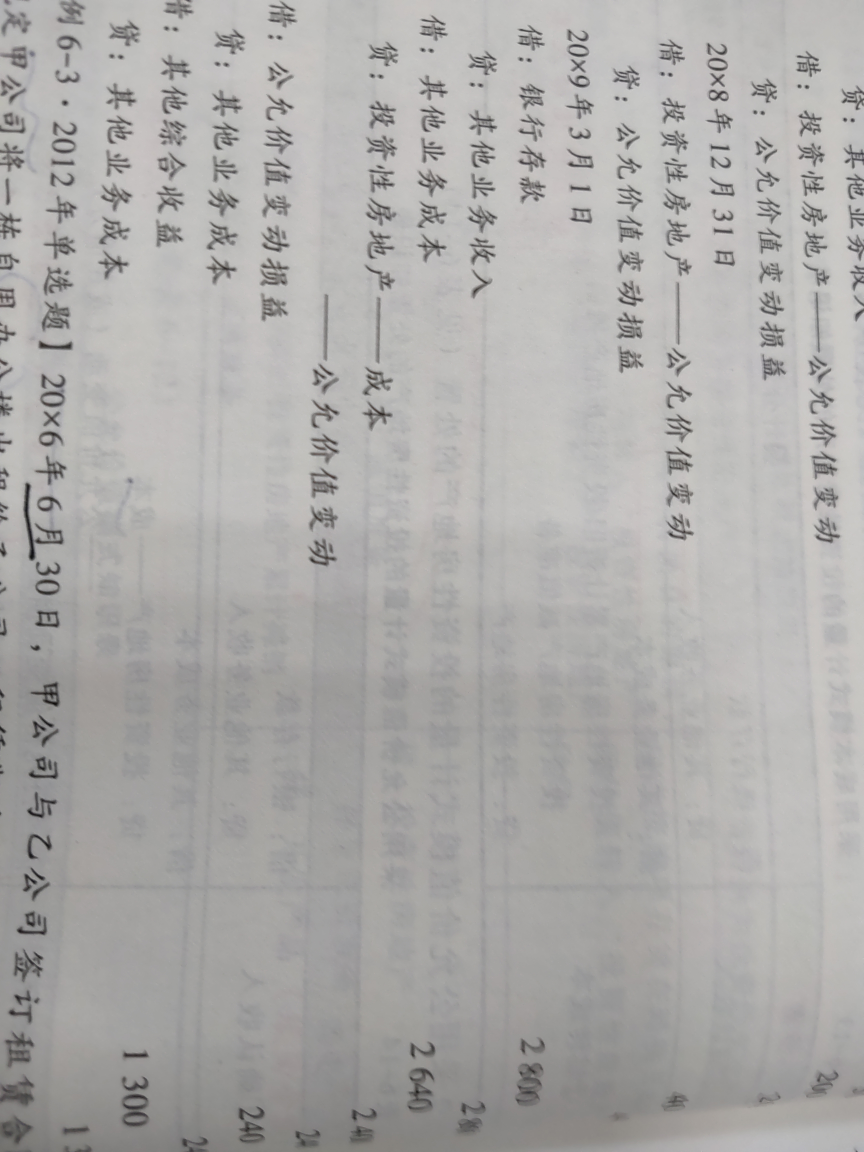 贷：其他业务收入
借：投资性房地产——公允价值变动
贷：公允价值变动损益
20×8年12月31日
借：投资性房地产——公允价值变动
贷：公允价值变动损益
20×9年3月1日
借：银行存款 2 800
贷：其他业务收入
借：其他业务成本 2 640
贷：投资性房地产——成本
——公允价值变动
借：公允价值变动损益 240
贷：其他业务成本
借：其他综合收益 1 300
贷：其他业务成本
例6-3·2012年单选题】20×6年6月30日，甲公司与乙公司签订租赁合
定甲公司将一栋自用办公楼出租给乙公司